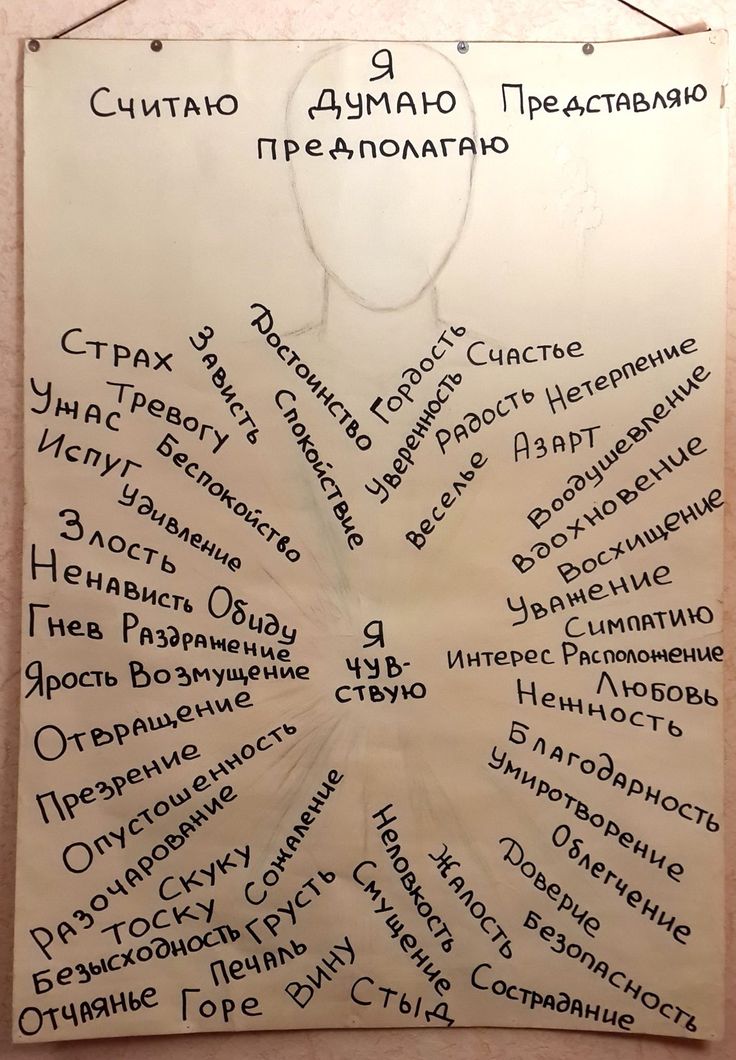 Я
Считаю Думаю Представляю
предполагаю
Страх
Зависть
Достоинство
Гордость
Счастье
Ужас
Тревогу
Спокойствие
Уверенность
Радость
Нетерпение
Испуг
Беспокойство
Веселье
Азарт
Воодушевление
Удивление
Вдохновение
Злость
Восхищение
Ненависть
Обиду
Уважение
Гнев
Раздражение
Симпатию
Я
чув-
ствую
Интерес
Расположение
Ярость
Возмущение
Любовь
Нежность
Отвращение
Благодарность
Презрение
Умиротворение
Опустошенность
Облегчение
Разочарование
Сожаление
Неловкость
Жалость
Доверие
Скуку
Тоску
Грусть
Смущение
Безопасность
Безысходность
Печаль
Вину
Сострадание
Отчаянье
Горе
Стыд